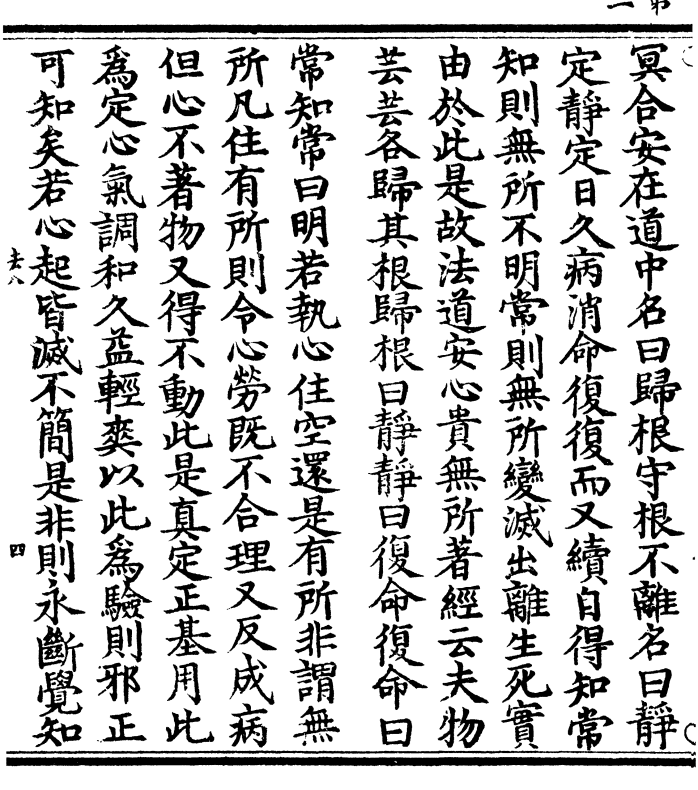 第一
冥合安在道中名曰歸根守根不離名曰靜
定靜定日久病消命復復而又續自得知常
知則無所不明常則無所變滅出離生死實
由於此是故法道安心貴無所著經云夫物
芸芸各歸其根歸根曰靜靜曰復命復命曰
常知常曰明若執心住空還是有所非謂無
所凡住有所則令心勞既不合理又反成病
但心不著物又得不動此是真定正基用此
為定心氣調和久益輕爽以此為驗則邪正
可知矣若心起皆滅不簡是非則永斷覺知
去八
四